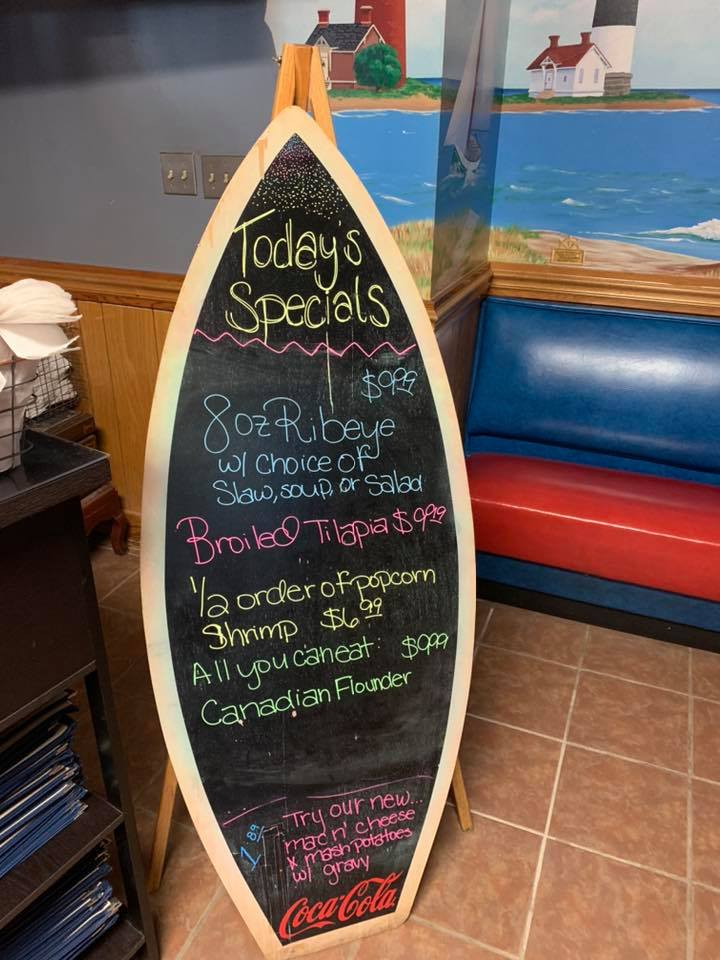 Today's
Specials
$9.99
8oz Ribeye
w/ Choice of
Slaw, soup, or Salad
Broiled Tilapia $9.99
1/2 order of popcorn
Shrimp $6.99
All you can eat: $9.99
Canadian Flounder
Try our new...
mac n' cheese
x mash potatoes
w/ gravy
1.89
Coca-Cola